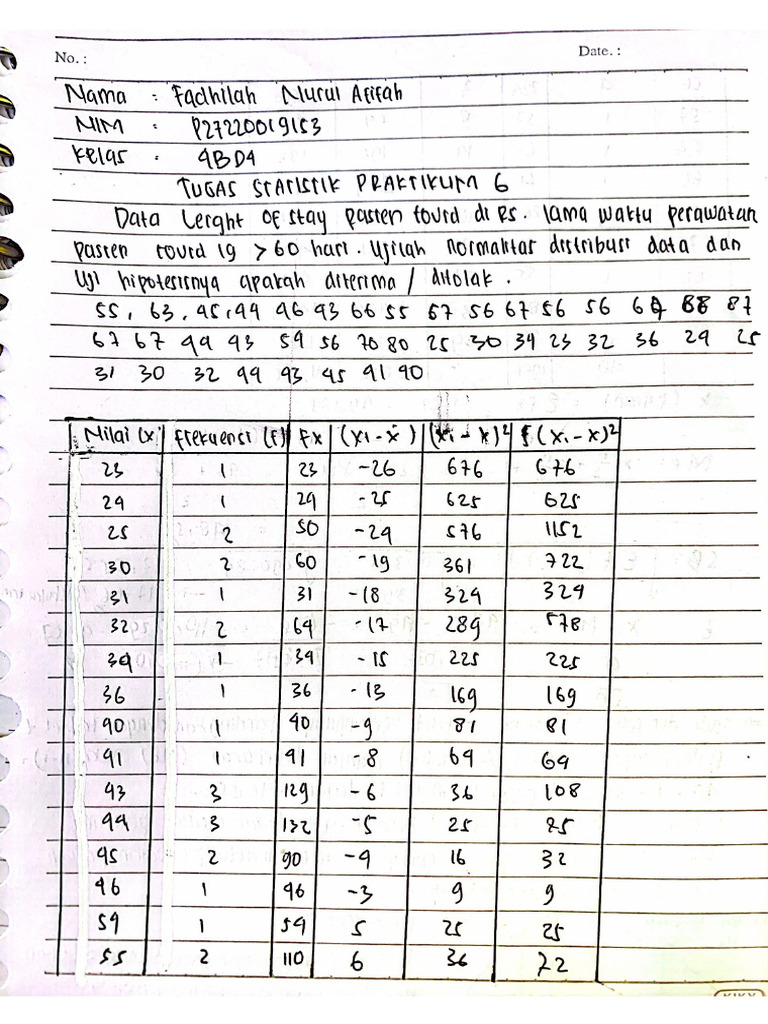 No. :
Date. :
Nama : Fadhilah Nurul Afifah
NIM : P27220019153
Kelas : 4BD4
TUGAS STATISTIK PRAKTIKUM 6
Data Lenght Of stay pasien covid di RS. lama waktu perawatan
pasien covid 19 > 60 hari. Ujilah normalitas distribusi data dan
Uji hipotesisnya apakah diterima / ditolak.
55, 63, 45, 44 46 43 66 55 67 56 67 56 56 67 88 87
67 67 44 43 54 56 70 80 25 30 34 23 32 36 24 25
31 30 32 44 43 45 41 40
Nilai (x) Frekuensi (f) Fx (xi - x̄) (xi - x)² f (xi - x)²
23 1 23 -26 676 676
24 1 24 -25 625 625
25 2 50 -24 576 1152
30 2 60 -19 361 722
31 1 31 -18 324 324
32 2 64 -17 289 578
34 1 34 -15 225 225
36 1 36 -13 169 169
40 1 40 -9 81 81
41 1 41 -8 64 64
43 3 129 -6 36 108
44 3 132 -5 25 75
45 2 90 -4 16 32
46 1 46 -3 9 9
54 1 54 5 25 25
55 2 110 6 36 72
KIKY